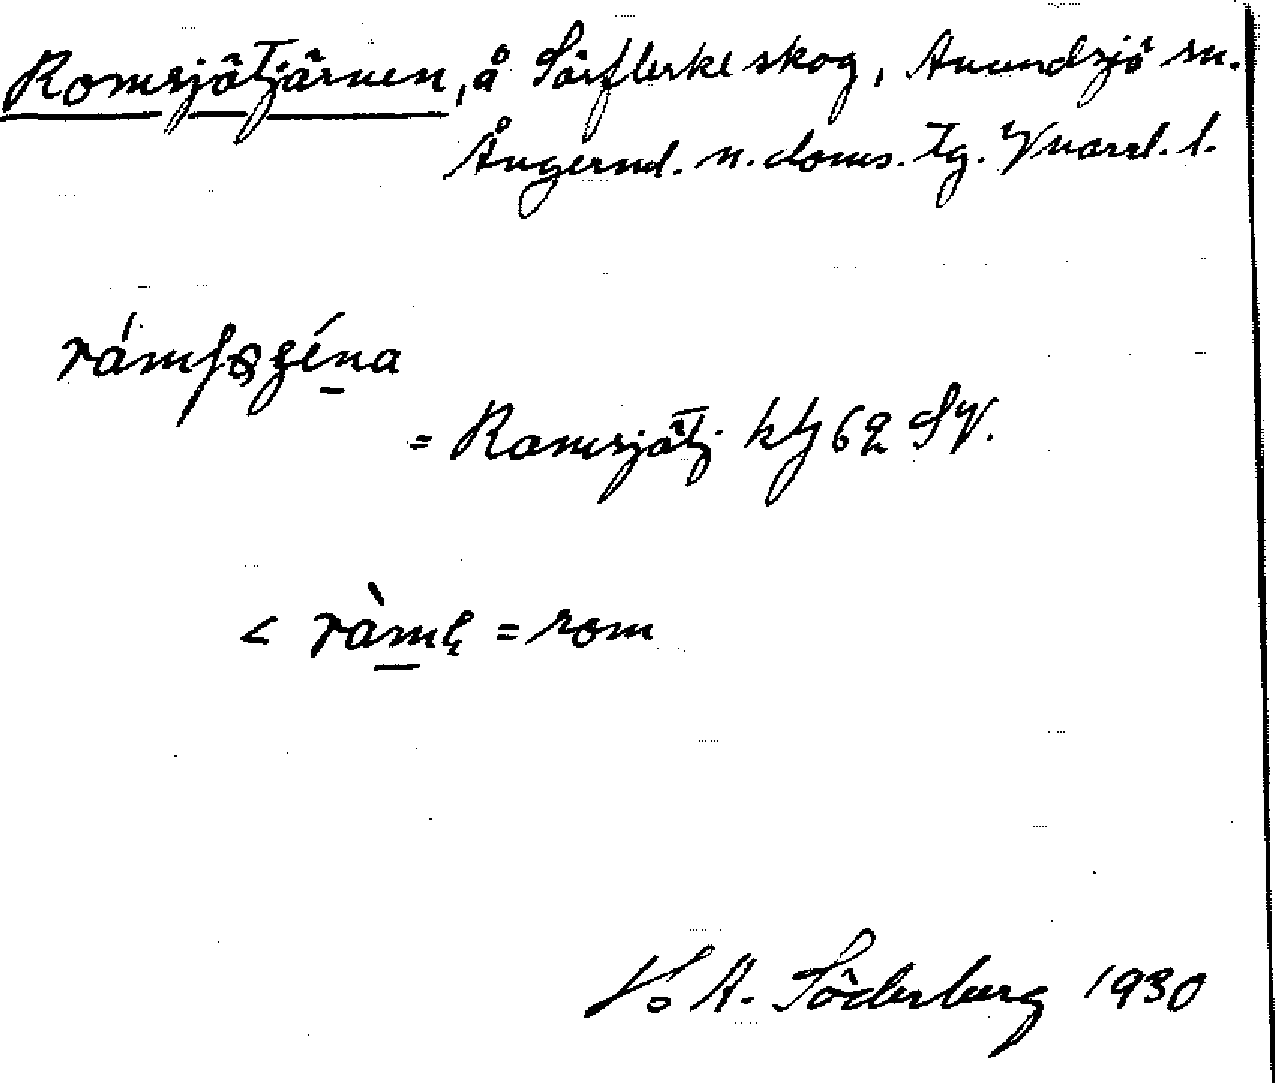 Romsjötjärnen, å Sörflärke skog, Anundsjö sn.
Ångerml. n. doms. tg. Vnorrl. l.
= Romsjötj. kbl 62 SV.
< ràmę = rom
K. A. Söderberg 1930